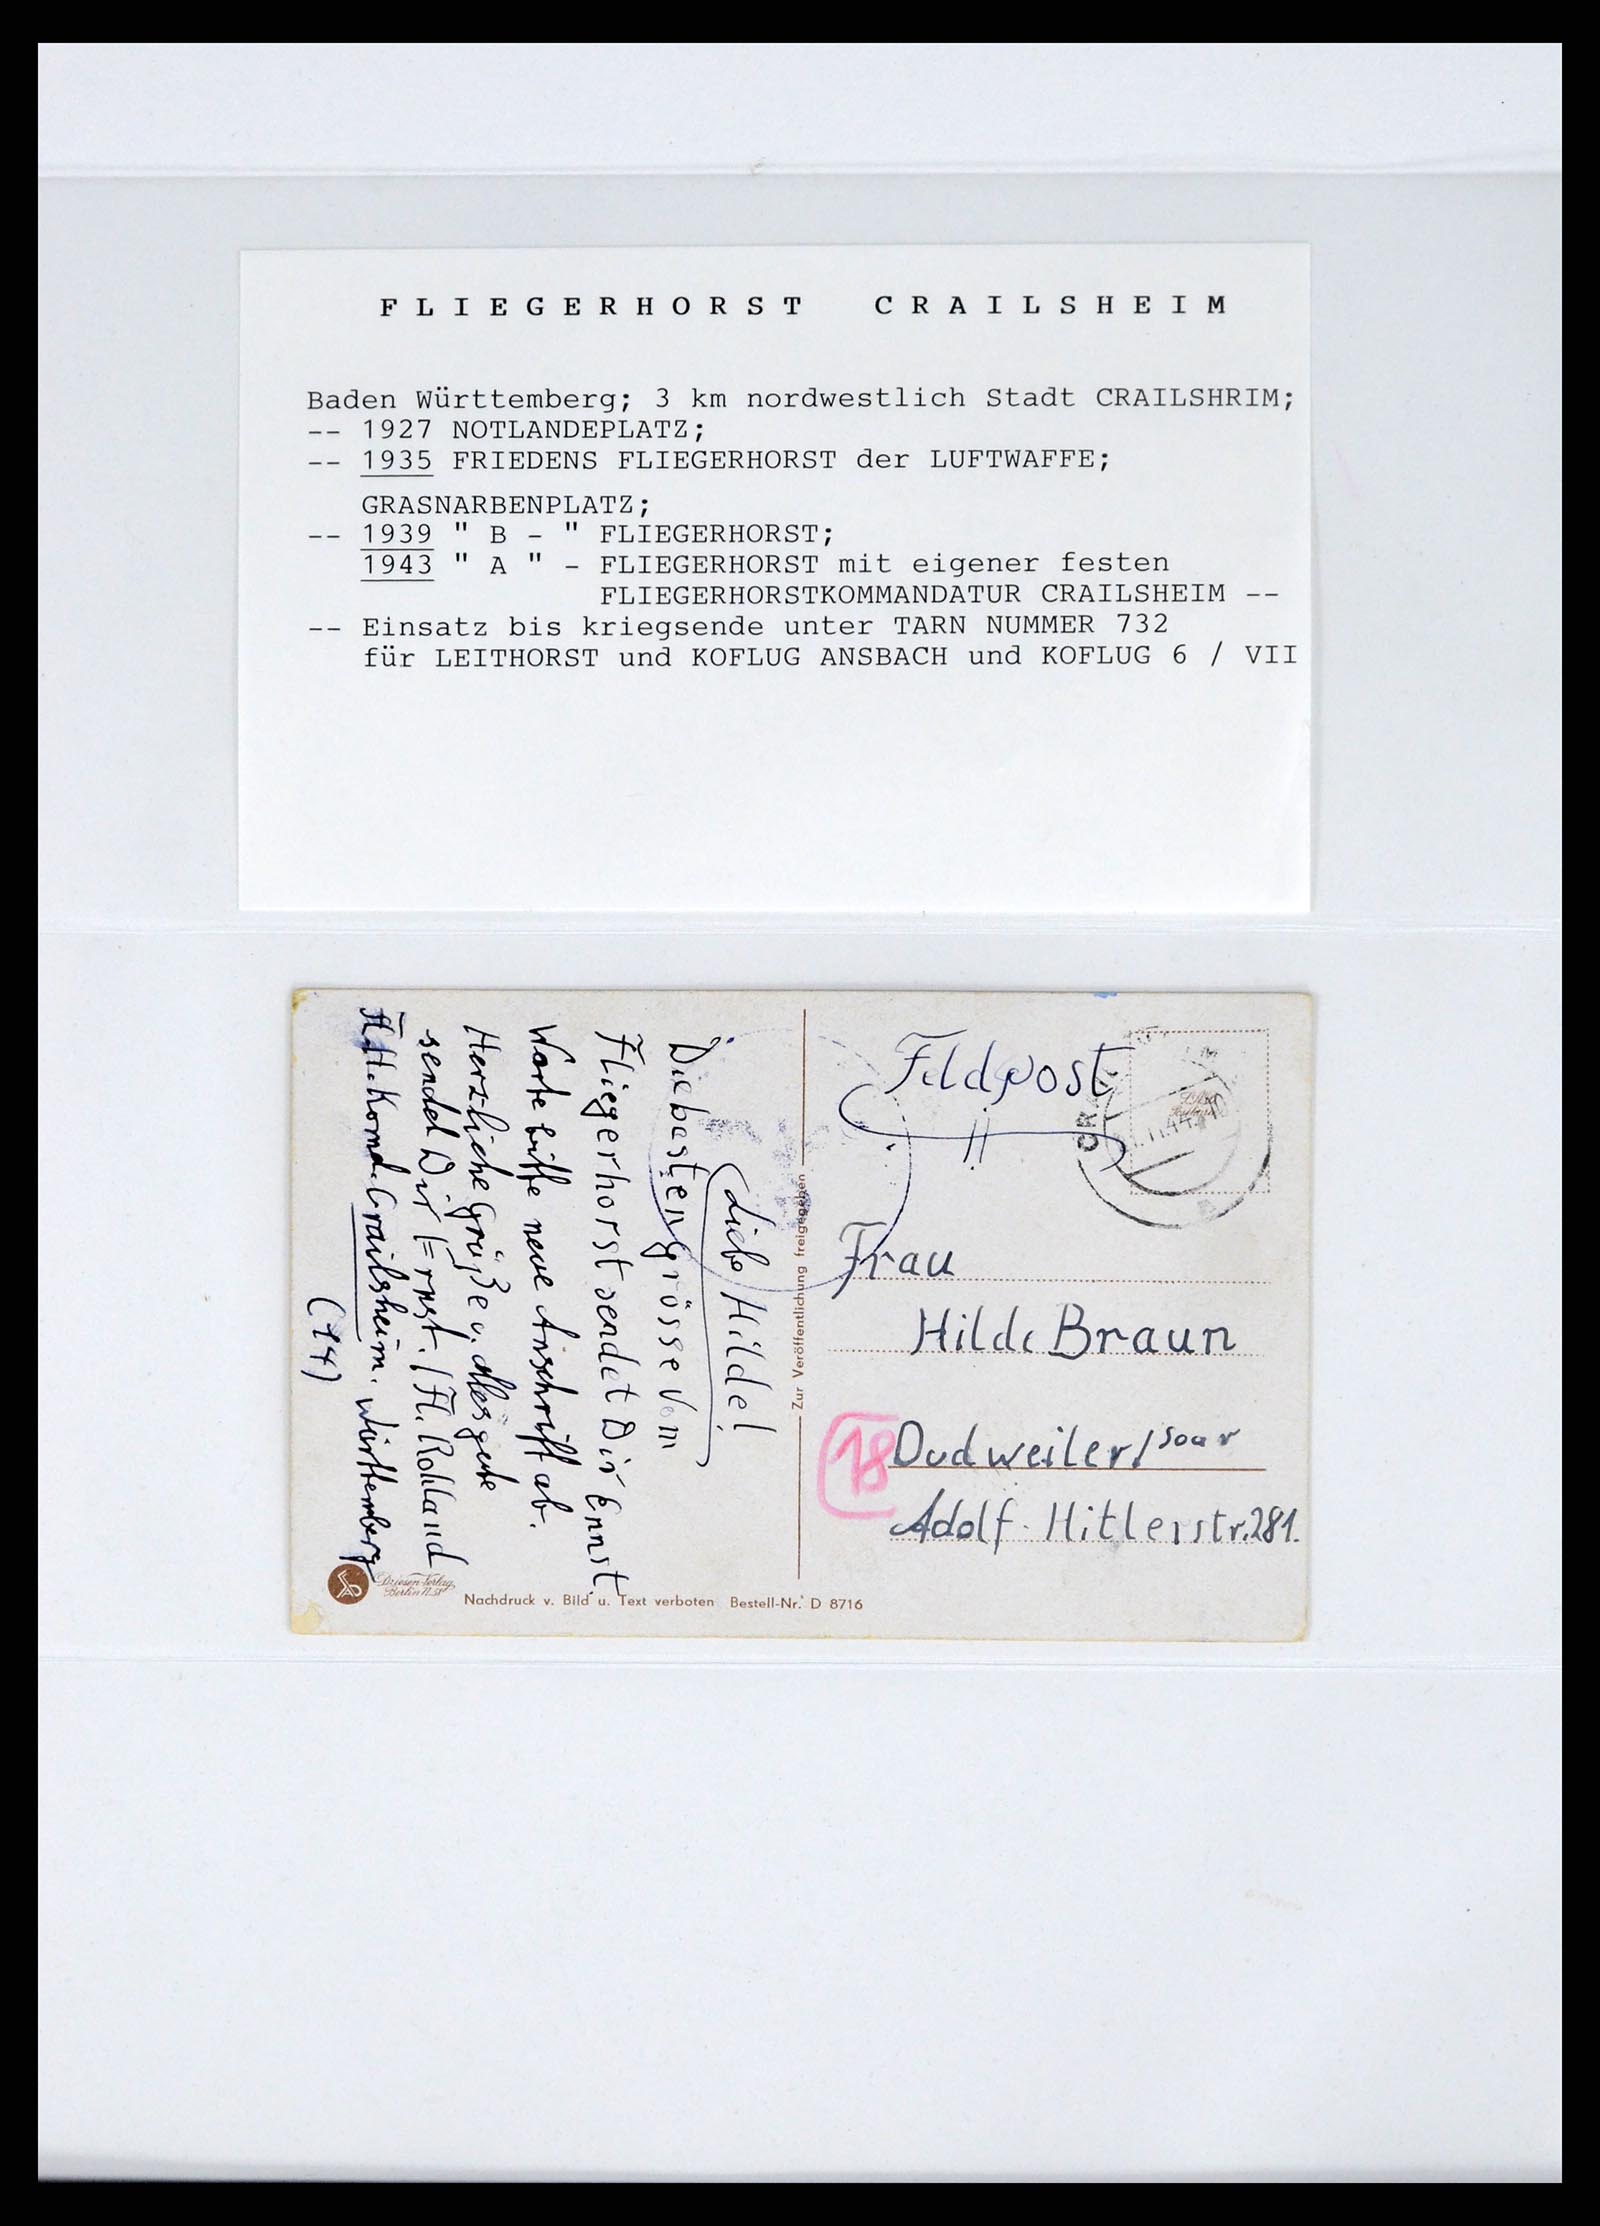 FLIEGERHORST CRAILSHEIM
Baden Württemberg; 3 km nordwestlich Stadt CRAILSHRIM;
-- 1927 NOTLANDEPLATZ;
-- 1935 FRIEDENS FLIEGERHORST der LUFTWAFFE;
GRASNARBENPLATZ;
-- 1939 " B - " FLIEGERHORST;
1943 " A " - FLIEGERHORST mit eigener festen
FLIEGERHORSTKOMMANDATUR CRAILSHEIM --
-- Einsatz bis kriegsende unter TARN NUMMER 732
für LEITHORST und KOFLUG ANSBACH und KOFLUG 6 / VII
Liebe Hilde!
Die besten grösse vom
Fliegerhorst sendet Dir Ernst
Warte bitte neue Anschrift ab.
Herzliche Grüße u. alles gute
sendet Dir Ernst. / Fl. Rohland
Fl.H.Komd. Crailsheim. Württemberg
(14)
Zur Veröffentlichung freigegeben
Feldpost
CR
Frau
Hilde Braun
18
Dudweiler/Saar
Adolf-Hitlerstr. 281.
Driesen-Verlag
Berlin N.58
Nachdruck v. Bild u. Text verboten Bestell-Nr. D 8716